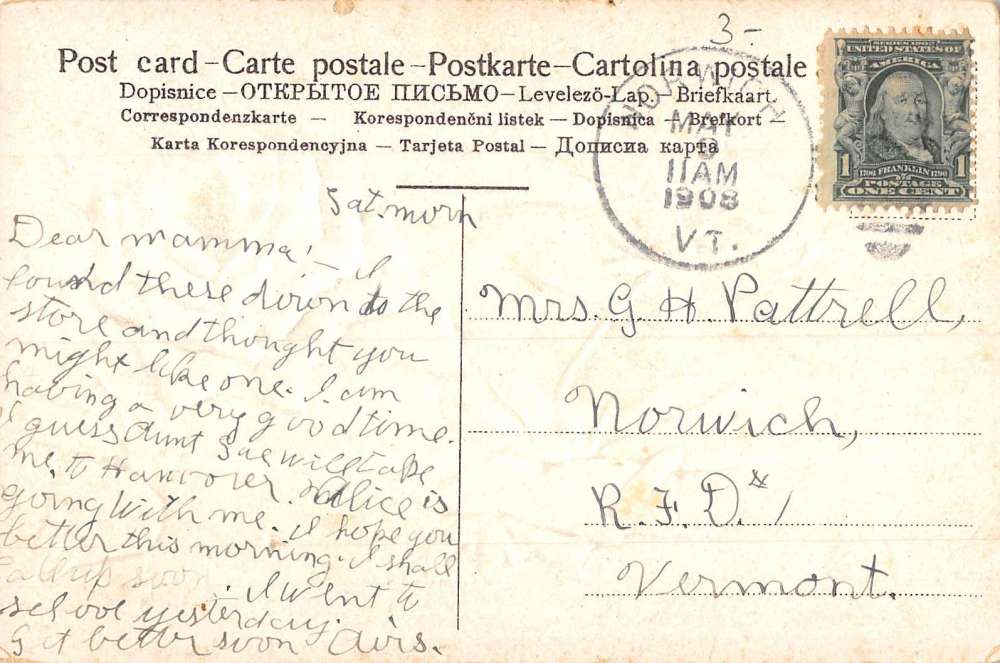 3-
Post card – Carte postale – Postkarte – Cartolina postale
Dopisnice – ОТКРЫТОЕ ПИСЬМО – Levelező-Lap. – Briefkaart.
Correspondenzkarte – Korespondenční listek – Dopisnica – Brefkort –
Karta Korespondencyjna – Tarjeta Postal – Дописна карта
NORWICH
MAY
9
11AM
1908
VT.
SERIES 1902
UNITED STATES OF
AMERICA
1 1
1706 FRANKLIN 1790
POSTAGE
ONE CENT
Sat. morn
Dear mamma! – I
found these down to the
store and thought you
might like one. I am
having a very good time.
I guess Aunt Sue will take
me to Hanover. Alice is
going with me. I hope you
better this morning. I shall
call up soon. I went to
school yesterday.
Get better soon
Mrs. G. H. Pattrell,
Norwich,
R.F.D. # 1
Vermont.